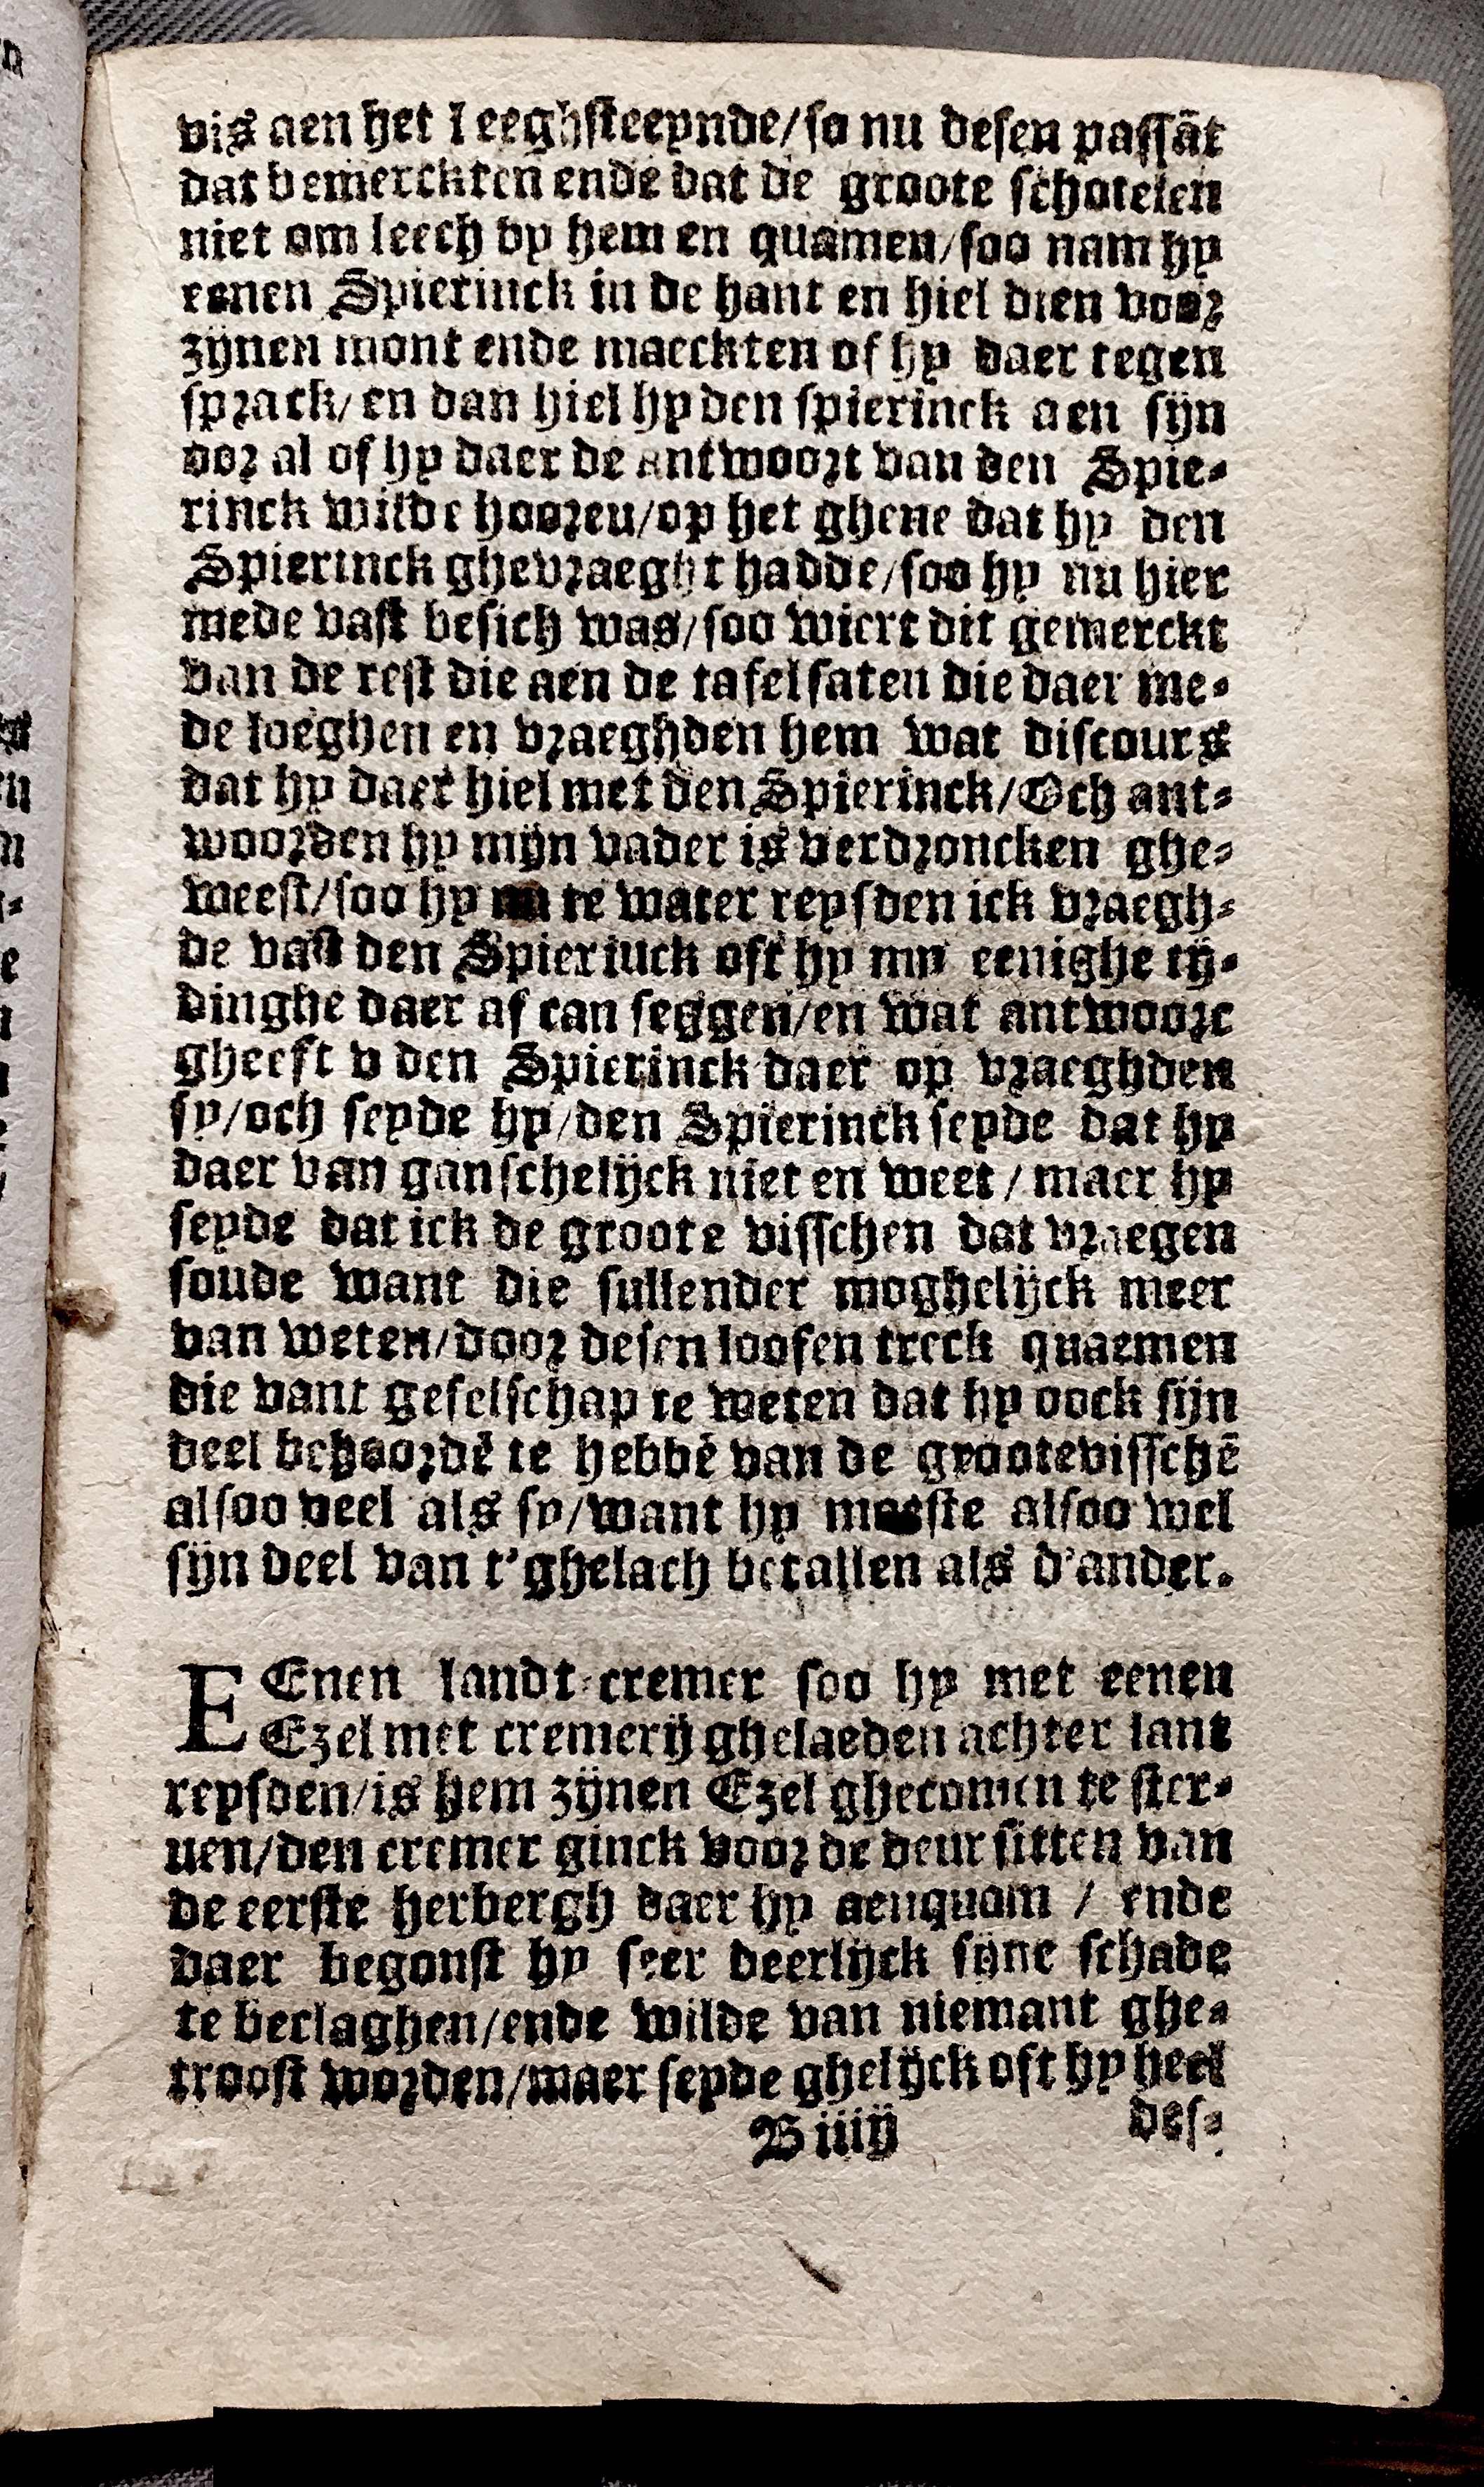 vis aen het leeghsteeynde/so nu desen passāt
dat bemerckten ende dat de groote schotelen
niet om leech by hem en quamen/soo nam hy
eenen Spierinck in de hant en hiel dien voor
zijnen mont ende maeckten of hy daer tegen
sprack/en dan hiel hy den spierinck aen sijn
oor al of hy daer de antwoort van den Spie-
rinck wilde hooren/op het ghene dat hy den
Spierinck ghevraeght hadde/soo hy nu hier
mede vast besich was/soo wiert dit gemerckt
van de rest die aen de tafel saten die daer me-
de loeghen en vraeghden hem wat discours
dat hy daer hiel met den Spierinck/Och ant-
woorden hy mijn vader is verdroncken ghe-
weest/soo hy te water reysden ick vraegh-
de vast den Spierinck oft hy my eenighe tij-
dinghe daer af can seggen/en wat antwoort
gheeft v den Spierinck daer op vraeghden
sy/och seyde hy/den Spierinck seyde dat hy
daer van ganschelijck niet en weet/maer hy
seyde dat ick de groote visschen dat vraegen
soude want die sullender moghelijck meer
van weten/door desen loosen treck quaemen
die vant geselschap te weten dat hy oock sijn
deel behoordē te hebbē van de grootevisschē
alsoo veel als sy/want hy moeste alsoo wel
sijn deel van t'ghelach betallen als d'ander.
EEnen landt-cremer soo hy met eenen
Ezel met cremerij ghelaeden achter lant
reysden/is hem zijnen Ezel ghecomen te ster-
uen/den cremer ginck voor de deur sitten van
de eerste herbergh daer hy aenquam / ende
daer begonst hy seer deerlijck sijne schade
te beclaghen/ende wilde van niemant ghe-
troost worden/maer seyde ghelijck oft hy heel
B iiij des-